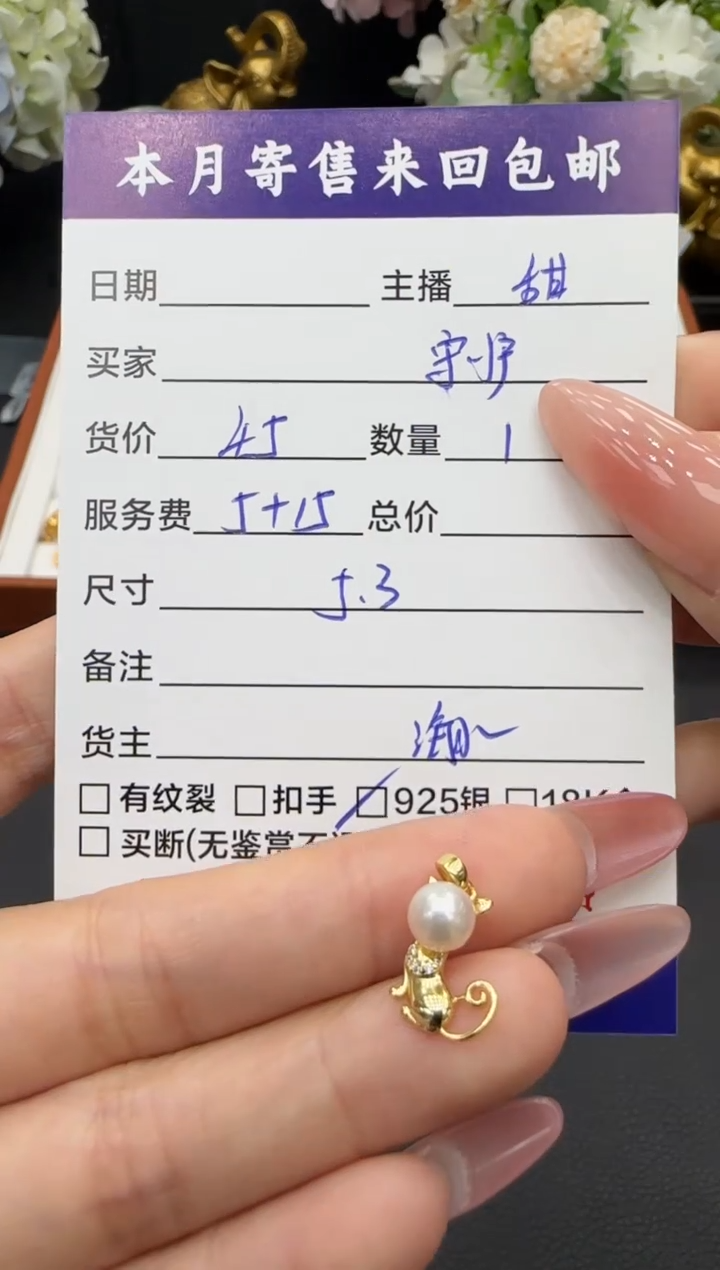 本月寄售来回包邮
日期 主播 甜
买家 守护
货价 45 数量 1
服务费 5+15 总价
尺寸 5.3
备注
货主
□ 有纹裂 □ 扣手 □ 925银 □ 18K金
□ 买断(无鉴赏不